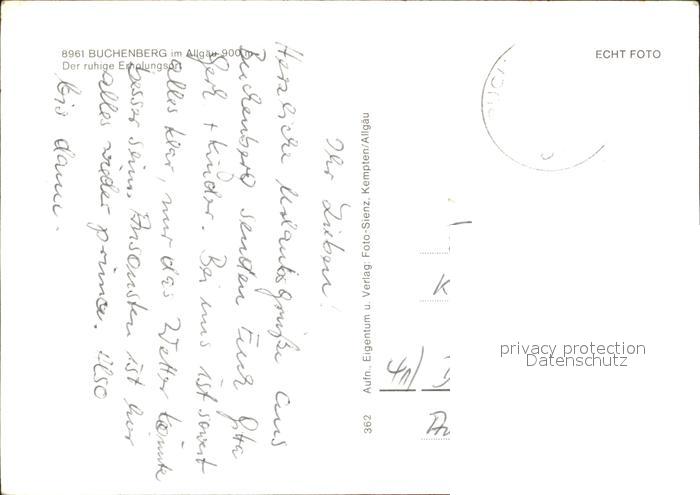 8961 BUCHENBERG im Allgäu 900 m
Der ruhige Erholungsort
ECHT FOTO
Ihr Lieben!
Herzliche Urlaubsgrüße aus
Buchenberg senden Euch Gita
Gerh + Kinder. Bei uns ist soweit
alles klar, nur das Wetter könnte
besser sein. Ansonsten ist hier
alles wieder prima. Also
bis dann.
362 Aufn., Eigentum u. Verlag: Foto-Sienz, Kempten/Allgäu
K
privacy protection
Datenschutz